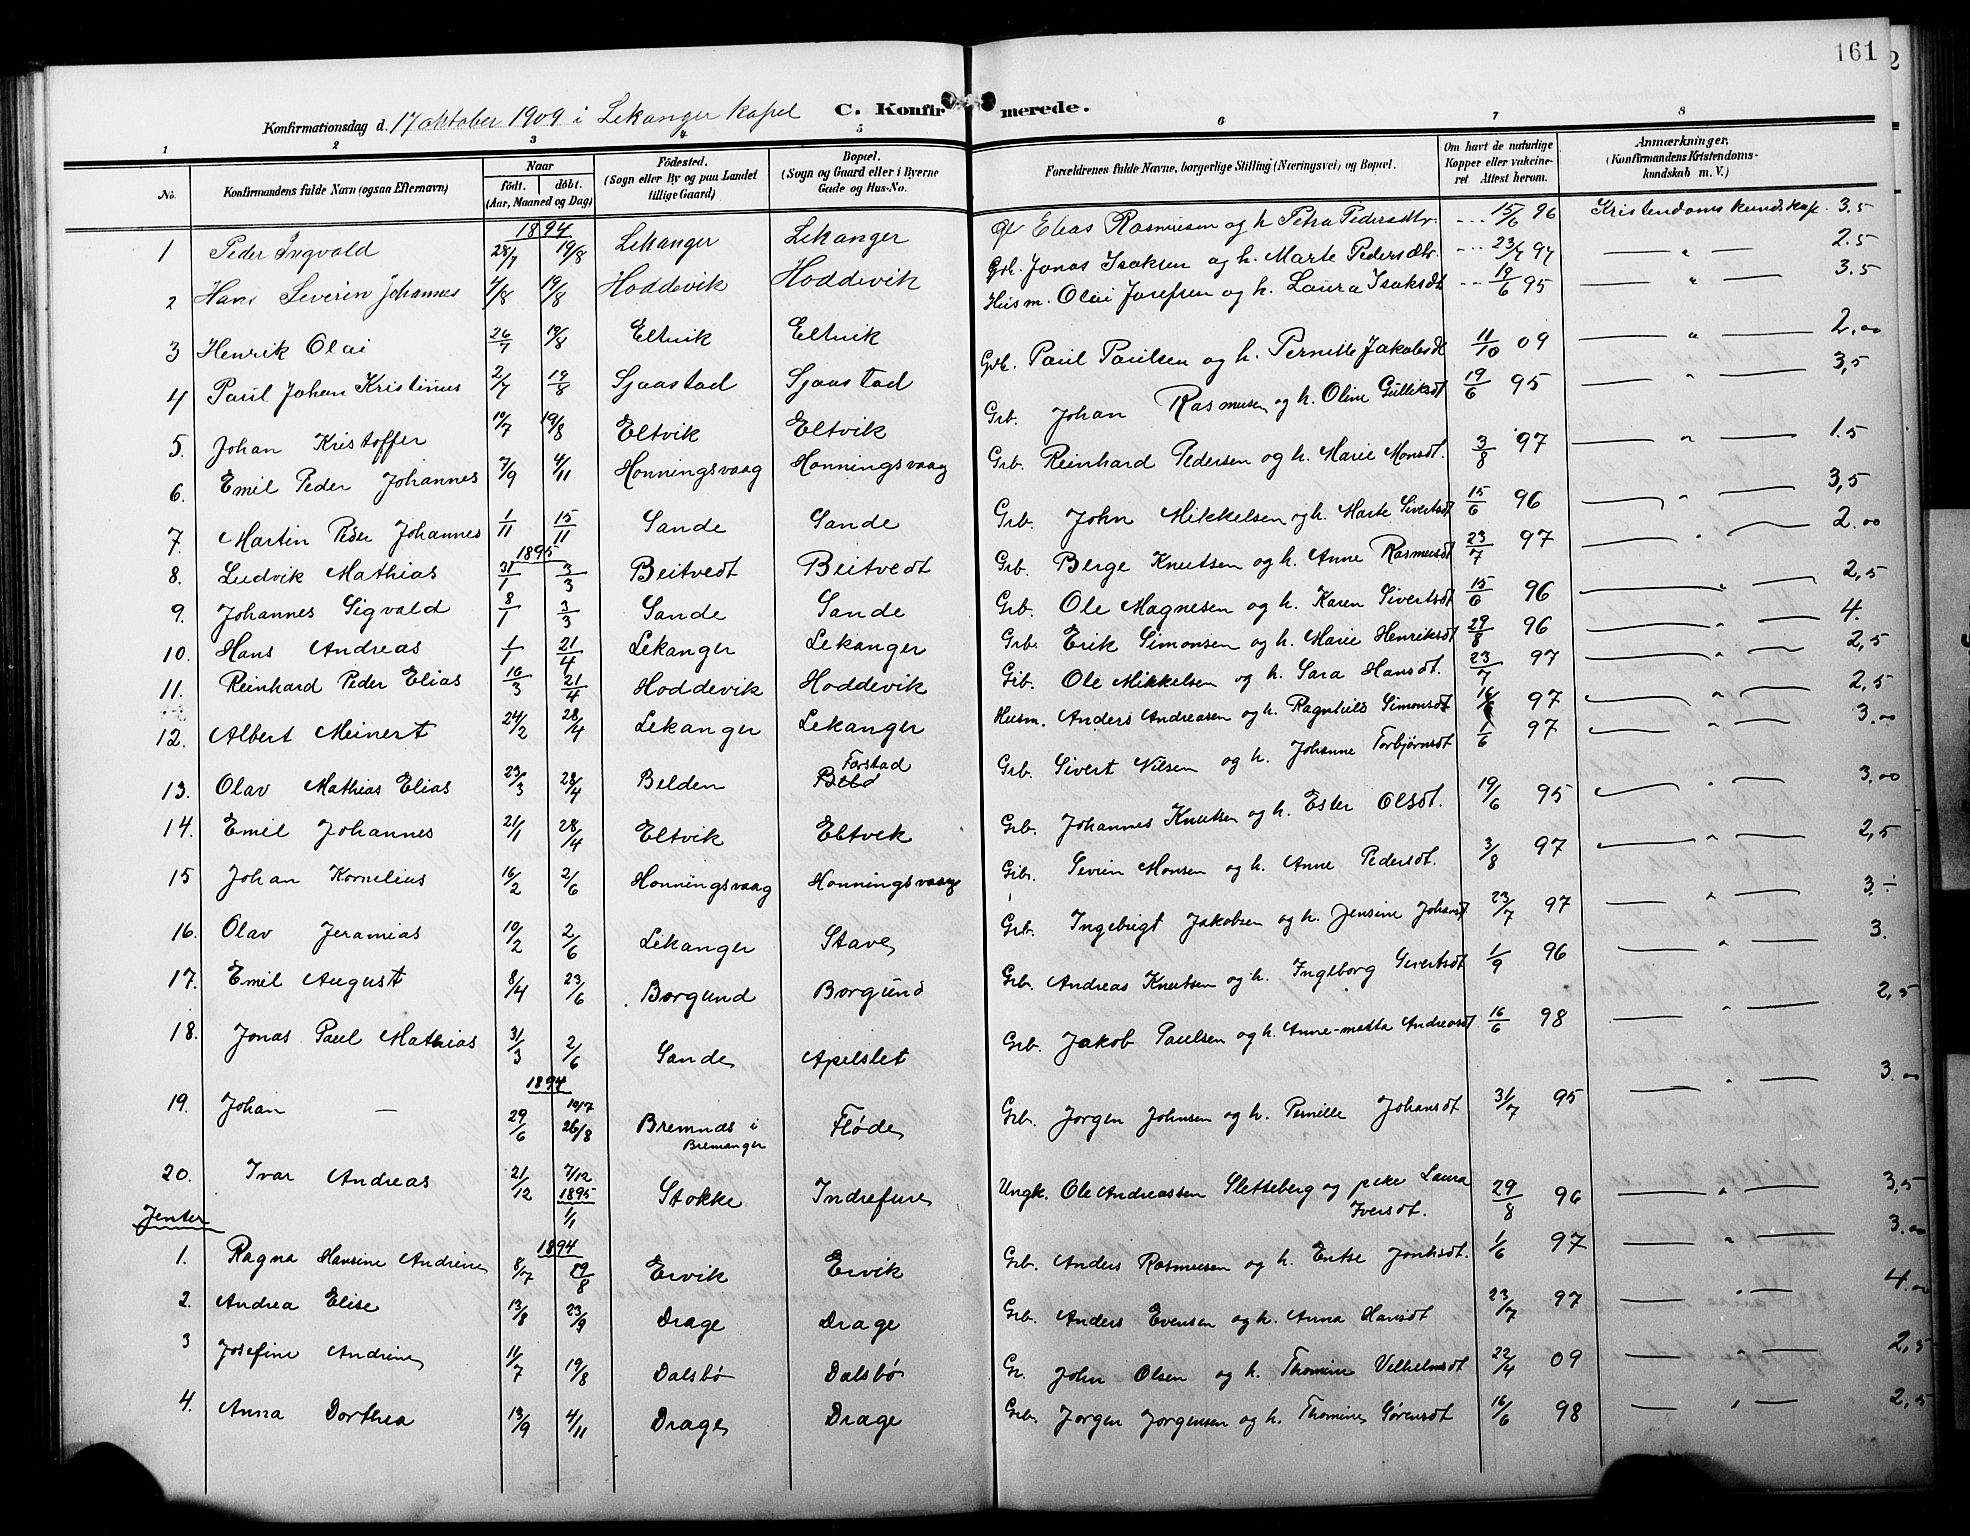 161
Konfirmationsdag d. 17 oktober 1909 i Lekanger kapel C. Konfirmerede.
1 2 3 4 5 6 7 8
No. Konfirmandens fulde Navn (ogsaa Efternavn) Naar født. døbt. (Aar, Maaned og Dag) Fødested. (Sogn eller By og paa Landet tillige Gaard) Bopæl. (Sogn og Gaard eller i Byerne Gade og Hus-No. Forældrenes fulde Navne, borgerlige Stilling (Næringsvei) og Bopæl. Om havt de naturlige Kopper eller vaccineret Attest herom. Anmærkninger. (Konfirmandens Kristendomskundskab m. V.)
1894
1 Peder Ingvald 28/7 19/8 Lekanger Lekanger Elias Rasmusen og h. Petra Pedersdtr. 15/6 96 Kristendoms kundskap 3.5
2 Hans Severin Johannes 4/8 19/8 Hoddevik Hoddevik Grb. Jonas Isaksen og h. Marte Pedersdtr. 23/7 97 — " — 2.5
3 Henrik Olai 26/7 19/8 Eltvik Eltvik Husm. Olai Josefsen og h. Laura Isaksdt 19/6 95 — " — 3.5
4 Paul Johan Kristinus 2/7 19/8 Sjaastad Sjaastad Grb. Paul Paulsen og h. Pernille Jakobsdt 11/10 09 — " — 2,00
5. Johan Kristoffer 10/7 19/8 Eltvik Eltvik Grb. Johan Rasmusen og h. Oline Gulliksdt 19/6 95 — " — 3,5
6. Emil Peder Johannes 7/9 4/11 Honningsvaag Honningsvaag Grb. Reinhard Pedersen og h. Marie Monsdt. 3/8 97 — " — 1.5
7. Martin Peder Johannes 1/11 15/11 Sande Sande Grb. John Mikkelsen og h. Marte Sivertsdt 15/6 96 — " — 3,5
1895
8. Ludvik Mathias 31/1 3/3 Beitvedt Beitvedt Grb. Berge Knutsen og h. Anne Rasmusdt 23/7 97 — " — 2.00
9. Johannes Sigvald 8/1 3/3 Sande Sande Grb. Ole Magnesen og h. Karen Sivertsdt 15/6 96 — " — 2,5
10. Hans Andreas 1/1 21/4 Lekanger Lekanger Grb. Erik Simonsen og h. Marie Henriksdt 29/8 96 — " — 4.
11. Reinhard Peder Elias 10/3 21/4 Hoddevik Hoddevik Grb. Ole Mikkelsen og h. Sara Hansdt. 23/7 97 — " — 2,5
12. Albert Meinert 24/2 28/4 Lekanger Lekanger Husm. Anders Andreasen og h. Ragnhild Simonsdt 16/6 97 — " — 2,5
13. Olav Mathias Elias 23/3 28/4 Belden Forstad Grb. Sivert Nilsen og h. Johanne Torbjørnsdt 1/6 97 — " — 3.00
14. Emil Johannes 21/1 28/4 Eltvik Eltvik Grb. Johannes Knutsen og h. Ester Olsdt. 19/6 95 — " — 3,00
15 Johan Kornelius 16/2 2/6 Honningsvaag Honningsvaag Grb. Sivein Monsen og h. Anne Pedersdt. 3/8 97 — " — 2,5
16. Olav Jeramias 10/2 2/6 Lekanger Stave Grb. Ingebrigt Jakobsen og h. Jensine Johansdt 23/7 97 — " — 3.÷
17. Emil August 8/4 23/6 Borgund Borgund Grb. Andreas Knutsen og h. Ingeborg Sivertsdt 1/9 96 — " — 3.
18. Jonas Paul Mathias 31/3 2/6 Sande Apelslet Grb. Jakob Paulsen og h. Anne-matta Andreasdt 16/6 98 — " — 2,5
1894
19. Johan — 29/6 10/7 26/8 Bremnæs i Bremanger Fløde Grb. Jorgen Johnsen og h. Pernille Johansdt 31/7 95 — " — 3.00
20. Ivar Andreas 21/12 7/12 1895 1/1 Stokke Indrefure Ungk. Ole Andreassen Sletteberg og pike Laura Iversdt. 29/8 96 — " — 3,5
Jenter
1894
1. Ragna Hansine Andrine 8/7 19/8 Ervik Ervik Grb. Anders Rasmusen og h. Entse Jonksdt. 1/6 97 — " — 3.00
2. Andrea Elise 13/8 23/9 Drage Drage Grb. Anders Evensen og h. Anna Hansdt 23/7 97 — " — 4.00
3 Josefine Andrine 11/7 19/8 Dalsbø Dalsbø Gr. John Olsen og h. Thomine Vilhelmsdt 22/4 09 — " — 2,5
4. Anna Dorthea 13/9 4/11 Drage Drage Grb. Jorgen Jorgensen og h. Thomine Sørensdt 16/6 98 — " — 2,5